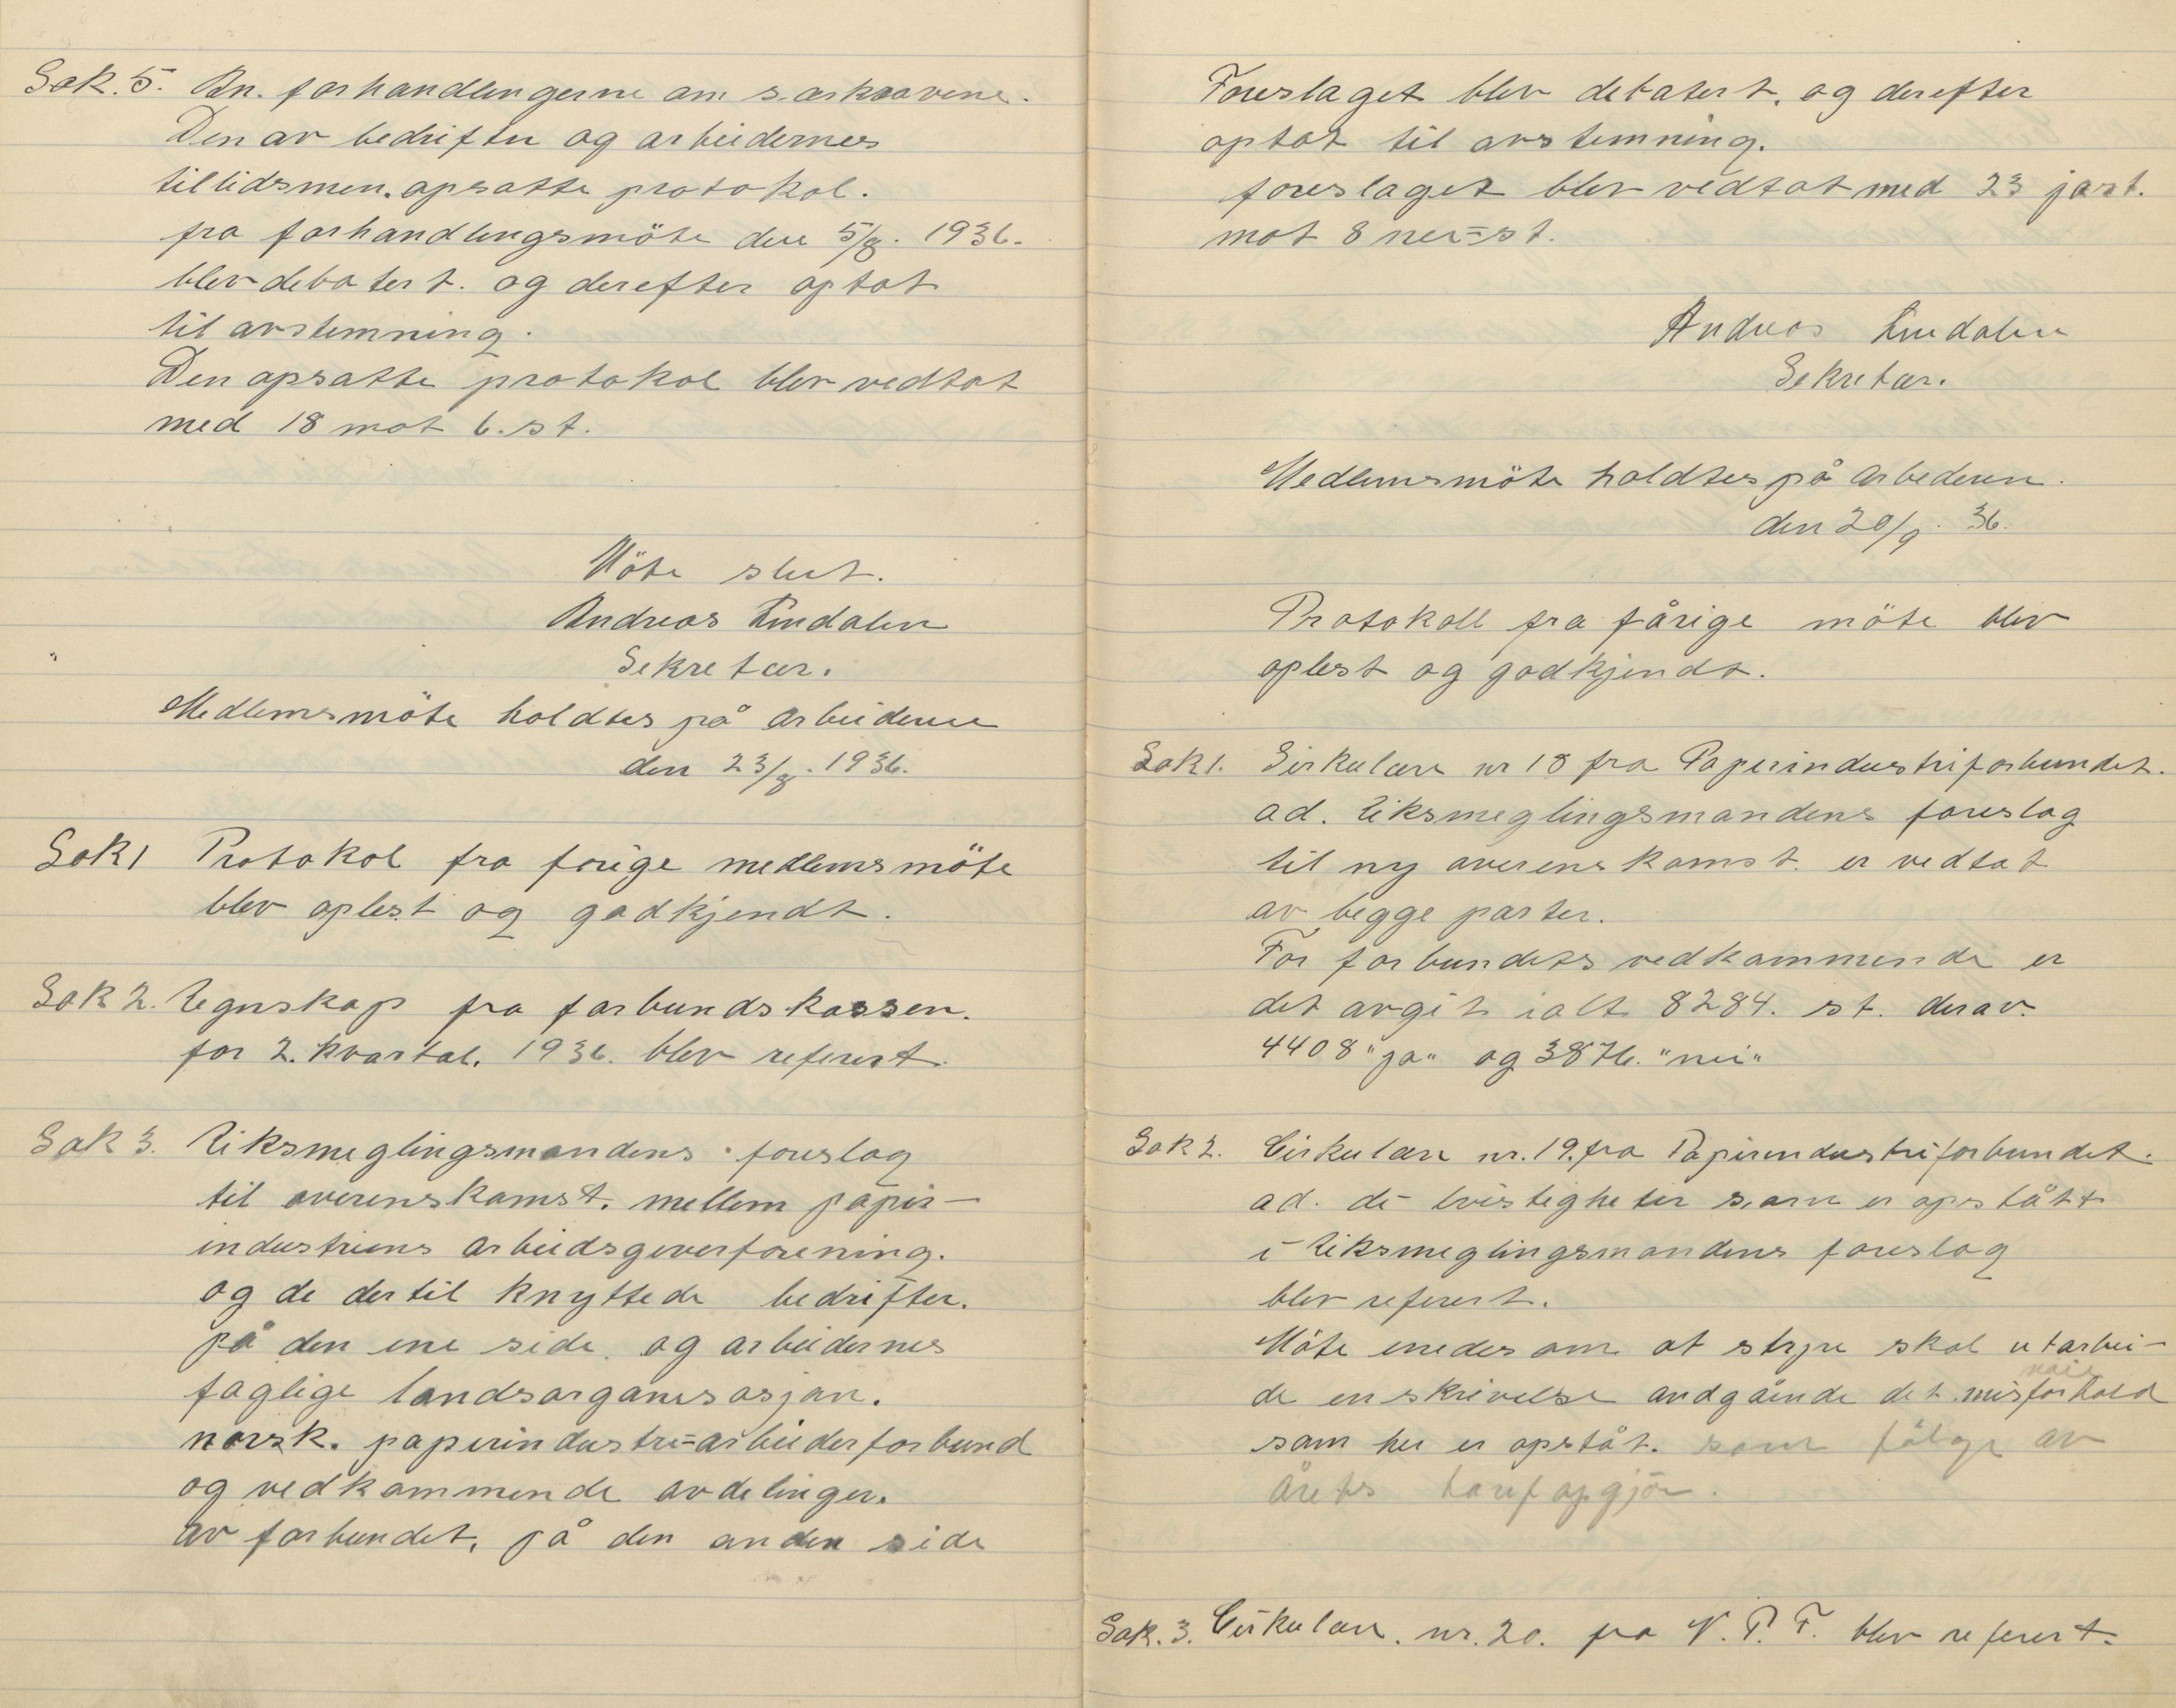 Sak. 5. An. forhandlingerne om særkravene.
Den av bedrifter og arbeidernes
tillidsmen. opsatte protokol.
fra forhandlingsmöte den 5/8. 1936.
blev debatert. og derefter optat
til avstemning.
Den opsatte protokol blev vedtat
med 18 mot 6. st.
Möte slut.
Andreas Lindalen
Sekretær.
Medlemsmöte holdtes på Arbeideren
den 23/8. 1936.
Sak 1 Protokol fra forige medlemsmöte
blev oplest og godkjendt.
Sak 2. Regnskap fra forbundskassen.
for 2. kvartal. 1936. blev referert.
Sak 3. Riksmeglingsmandens foreslag
til overenskomst. mellem papir-
industriens Arbeidsgiverforening.
og de dertil knyttede bedrifter.
på den ene side. og arbeidernes
faglige landsorganisasjon.
norsk. papirindustri=arbeiderforbund
og vedkommende avdelinger.
av forbundet, på den anden side
Foreslaget blev debatert. og derefter
optat til avstemning.
foreslaget blev vedtat med 23 jast.
mot 8 nei=st.
Andreas Lindalen
Sekretær.
Medlemsmöte holdtes på Arbederen.
den 20/9. 36.
Protokoll fra fårige möte blev
oplest og godkjendt.
Sak 1. Sirkulære nr 18 fra Papirindustriforbundet.
ad. Riksmeglingsmandens foreslag
til ny overenskomst. er vedtat
av begge parter.
For forbundets vedkommende er
det avgit ialt 8284. st. derav.
4408 "ja" og 3876. "nei"
Sak 2. Cirkulære nr. 19. fra Papirindustriforbundet.
ad. de tvistigheter som er opstått
i Riksmeglingsmandens foreslag
blev referert.
Möte enedes om at styre skal utarbei-
de en skrivelse andgående det misforhold
som her er opståt. som fölge av
årets tarifopgjör.
Sak. 3. Cirkulære. nr. 20. fra N. P. F. blev referert.